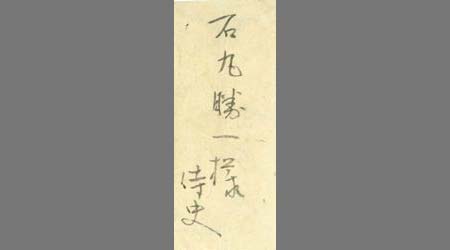 石丸勝一様
侍史